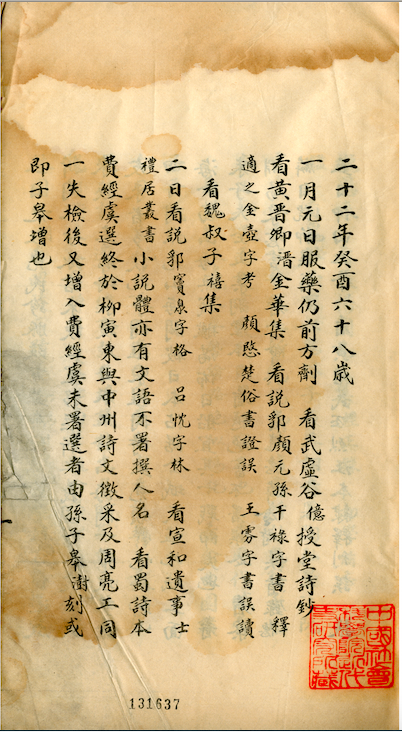 二十二年癸酉六十八歲
一月元日服藥仍前方劑　看武虛谷億授堂詩鈔
看黃晉卿溍金華集　看說郛顏元孫干祿字書　釋
適之金壺字考　顏愍楚俗書證誤　王雱字書誤讀
看魏叔子禧集
二日看說郛竇泉字格　呂忱字林　看宣和遺事士
禮居叢書小說體亦有文語不署撰人名　看蜀詩本
費經虞選終於柳寅東與中州詩文徵采及周亮工同
一失檢後又增入費經虞未署選者由孫子皋澍刻或
即子皋增也
中國社會
科學院近代
史研究所藏
131637